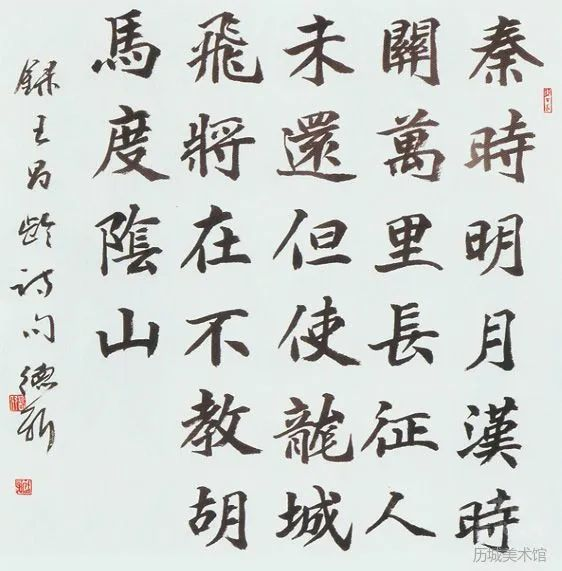 秦時明月漢時
關萬里長征人
未還但使龍城
飛將在不教胡
馬度陰山
録王昌龄诗句
历城美术馆